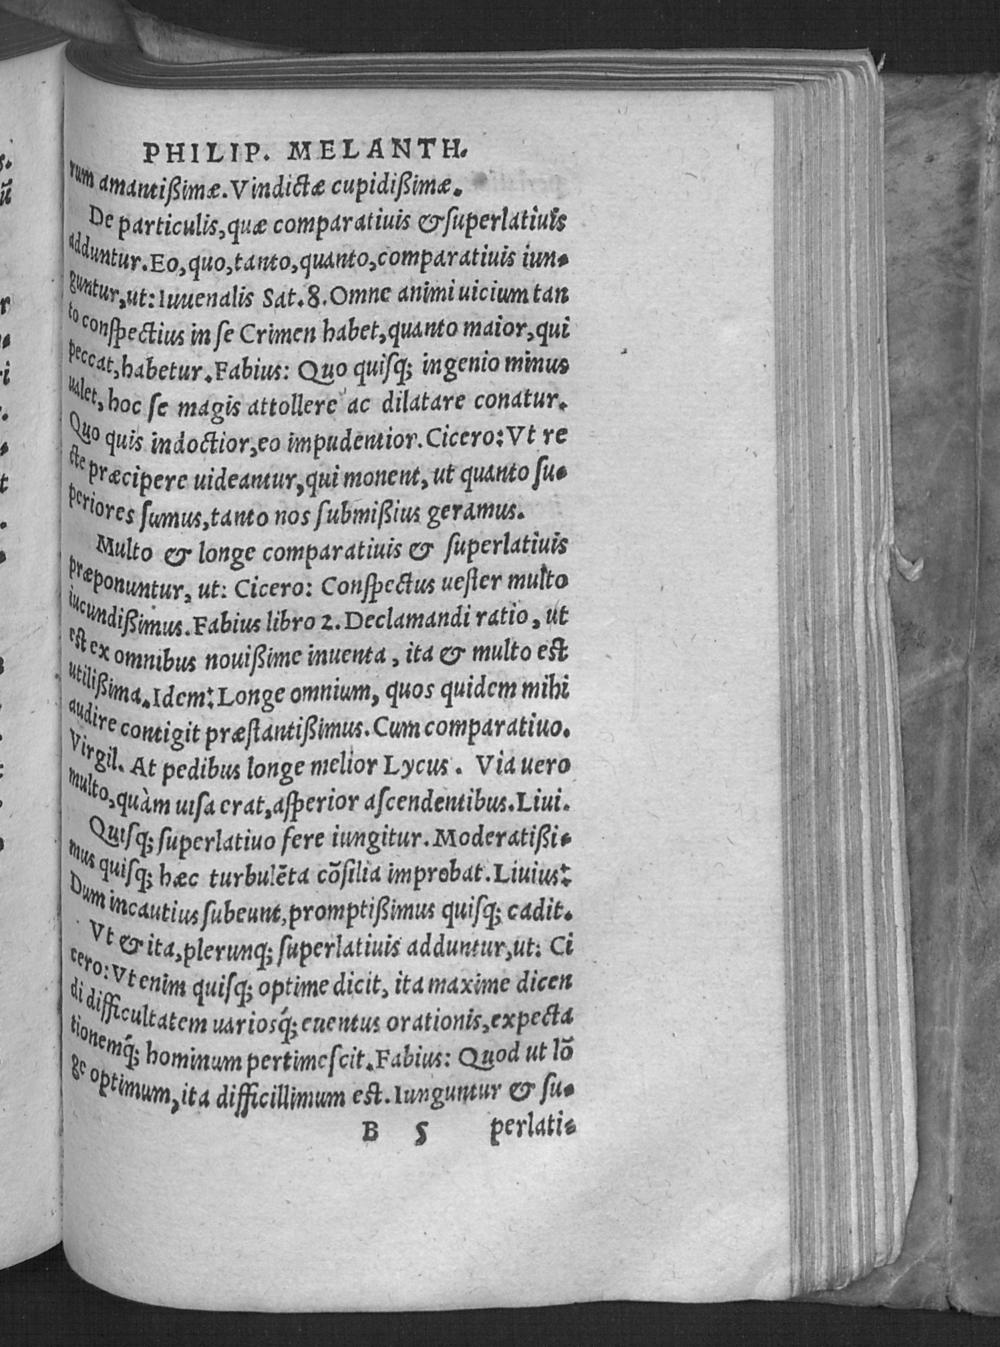 PHILIP. MELANTH.
rum amantißimæ. Vindictæ cupidißimæ.
De particulis, quæ comparatiuis & superlatiuis
adduntur. Eo, quo, tanto, quanto, comparatiuis iun-
guntur, ut: Iuuenalis Sat. 8. Omne animi uicium tan
to conspectius in se Crimen habet, quanto maior, qui
peccat, habetur. Fabius: Quo quisq; ingenio minus
ualet, hoc se magis attollere ac dilatare conatur.
Quo quis indoctior, eo impudentior. Cicero: Vt re
cte præcipere uideantur, qui monent, ut quanto su-
periores sumus, tanto nos submißius geramus.
Multo & longe comparatiuis & superlatiuis
præponuntur, ut: Cicero: Conspectus uester multo
iucundißimus. Fabius libro 2. Declamandi ratio, ut
est ex omnibus nouißime inuenta, ita & multo est
utilißima. Idem: Longe omnium, quos quidem mihi
audire contigit præstantißimus. Cum comparatiuo.
Virgil. At pedibus longe melior Lycus. Via uero
multo, quàm uisa erat, asperior ascendentibus. Liui.
Quisq; superlatiuo fere iungitur. Moderatißi-
mus quisq; hæc turbulẽta cõsilia improbat. Liuius:
Dum incautius subeunt, promptißimus quisq; cadit.
Vt & ita, plerunq; superlatiuis adduntur, ut: Ci
cero: Vt enim quisq; optime dicit, ita maxime dicen
di difficultatem uariosq́; euentus orationis, expecta
tionemq́; hominum pertimescit. Fabius: Quod ut lõ
ge optimum, ita difficillimum est. Iunguntur & su-
B 5 perlati-